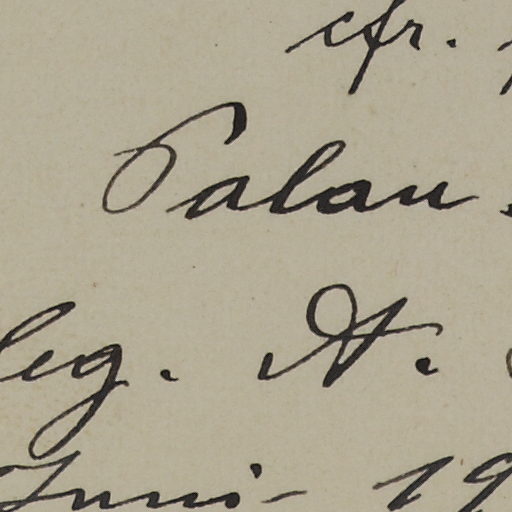 cfr.
Palau.
leg. A.
Juni - 19